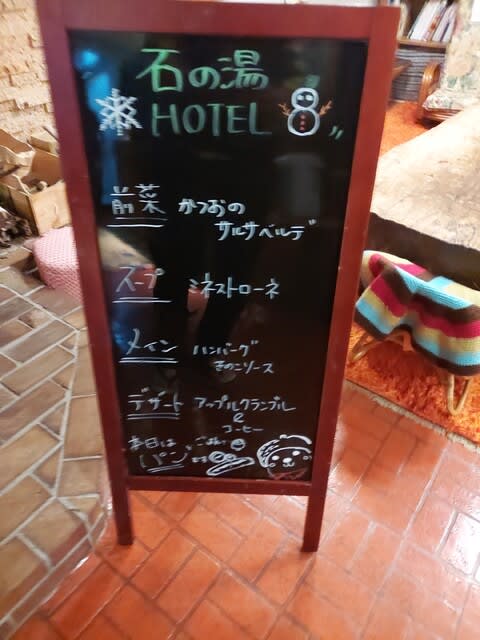 石の湯
HOTEL
前菜 かつおの
サルサベルデ
スープ ミネストローネ
メイン ハンバーグ
きのこソース
デザート アップルクランブル
&
コーヒー
本日は
パン